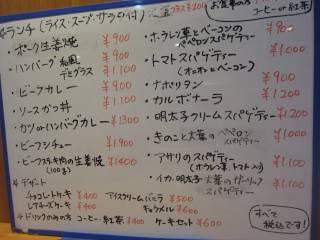 ランチ(ライス・スープ・サラダ付)
プラス¥200
お食事の方
コーヒー or 紅茶
・ポーク生姜焼 ¥900
・ハンバーグ 和風 デミグラス ¥900 ¥1.100
・ビーフカレー ¥900
・ソースかつ丼 ¥1.100
・カツorハンバーグカレー ¥1300
・ビーフシチュー ¥1.900
の生姜焼 (100g) ¥1400
・ホーレン草とベーコンの
・トマトスパゲティー ¥1.000
(オニオンとベーコン)
・ナポリタン ¥900
・カルボナーラ ¥1.200
・明太子クリームスパゲティー ¥1.200
・きのこと大葉の スパゲティー ¥1.000
・アサリのスパゲティー ¥1.100
(ホーレン草、トマト入り)
・イカ、明太子 大葉のガーリック スパゲティー ¥1.100
デザート
チョコレートケーキ ¥400
レアチーズケーキ ¥400
アイスクリーム バニラ ¥500
キャラメル ¥600
ドリンクのみの方 コーヒー・紅茶 ¥400
ケーキセット ¥600
すべて
税込です!